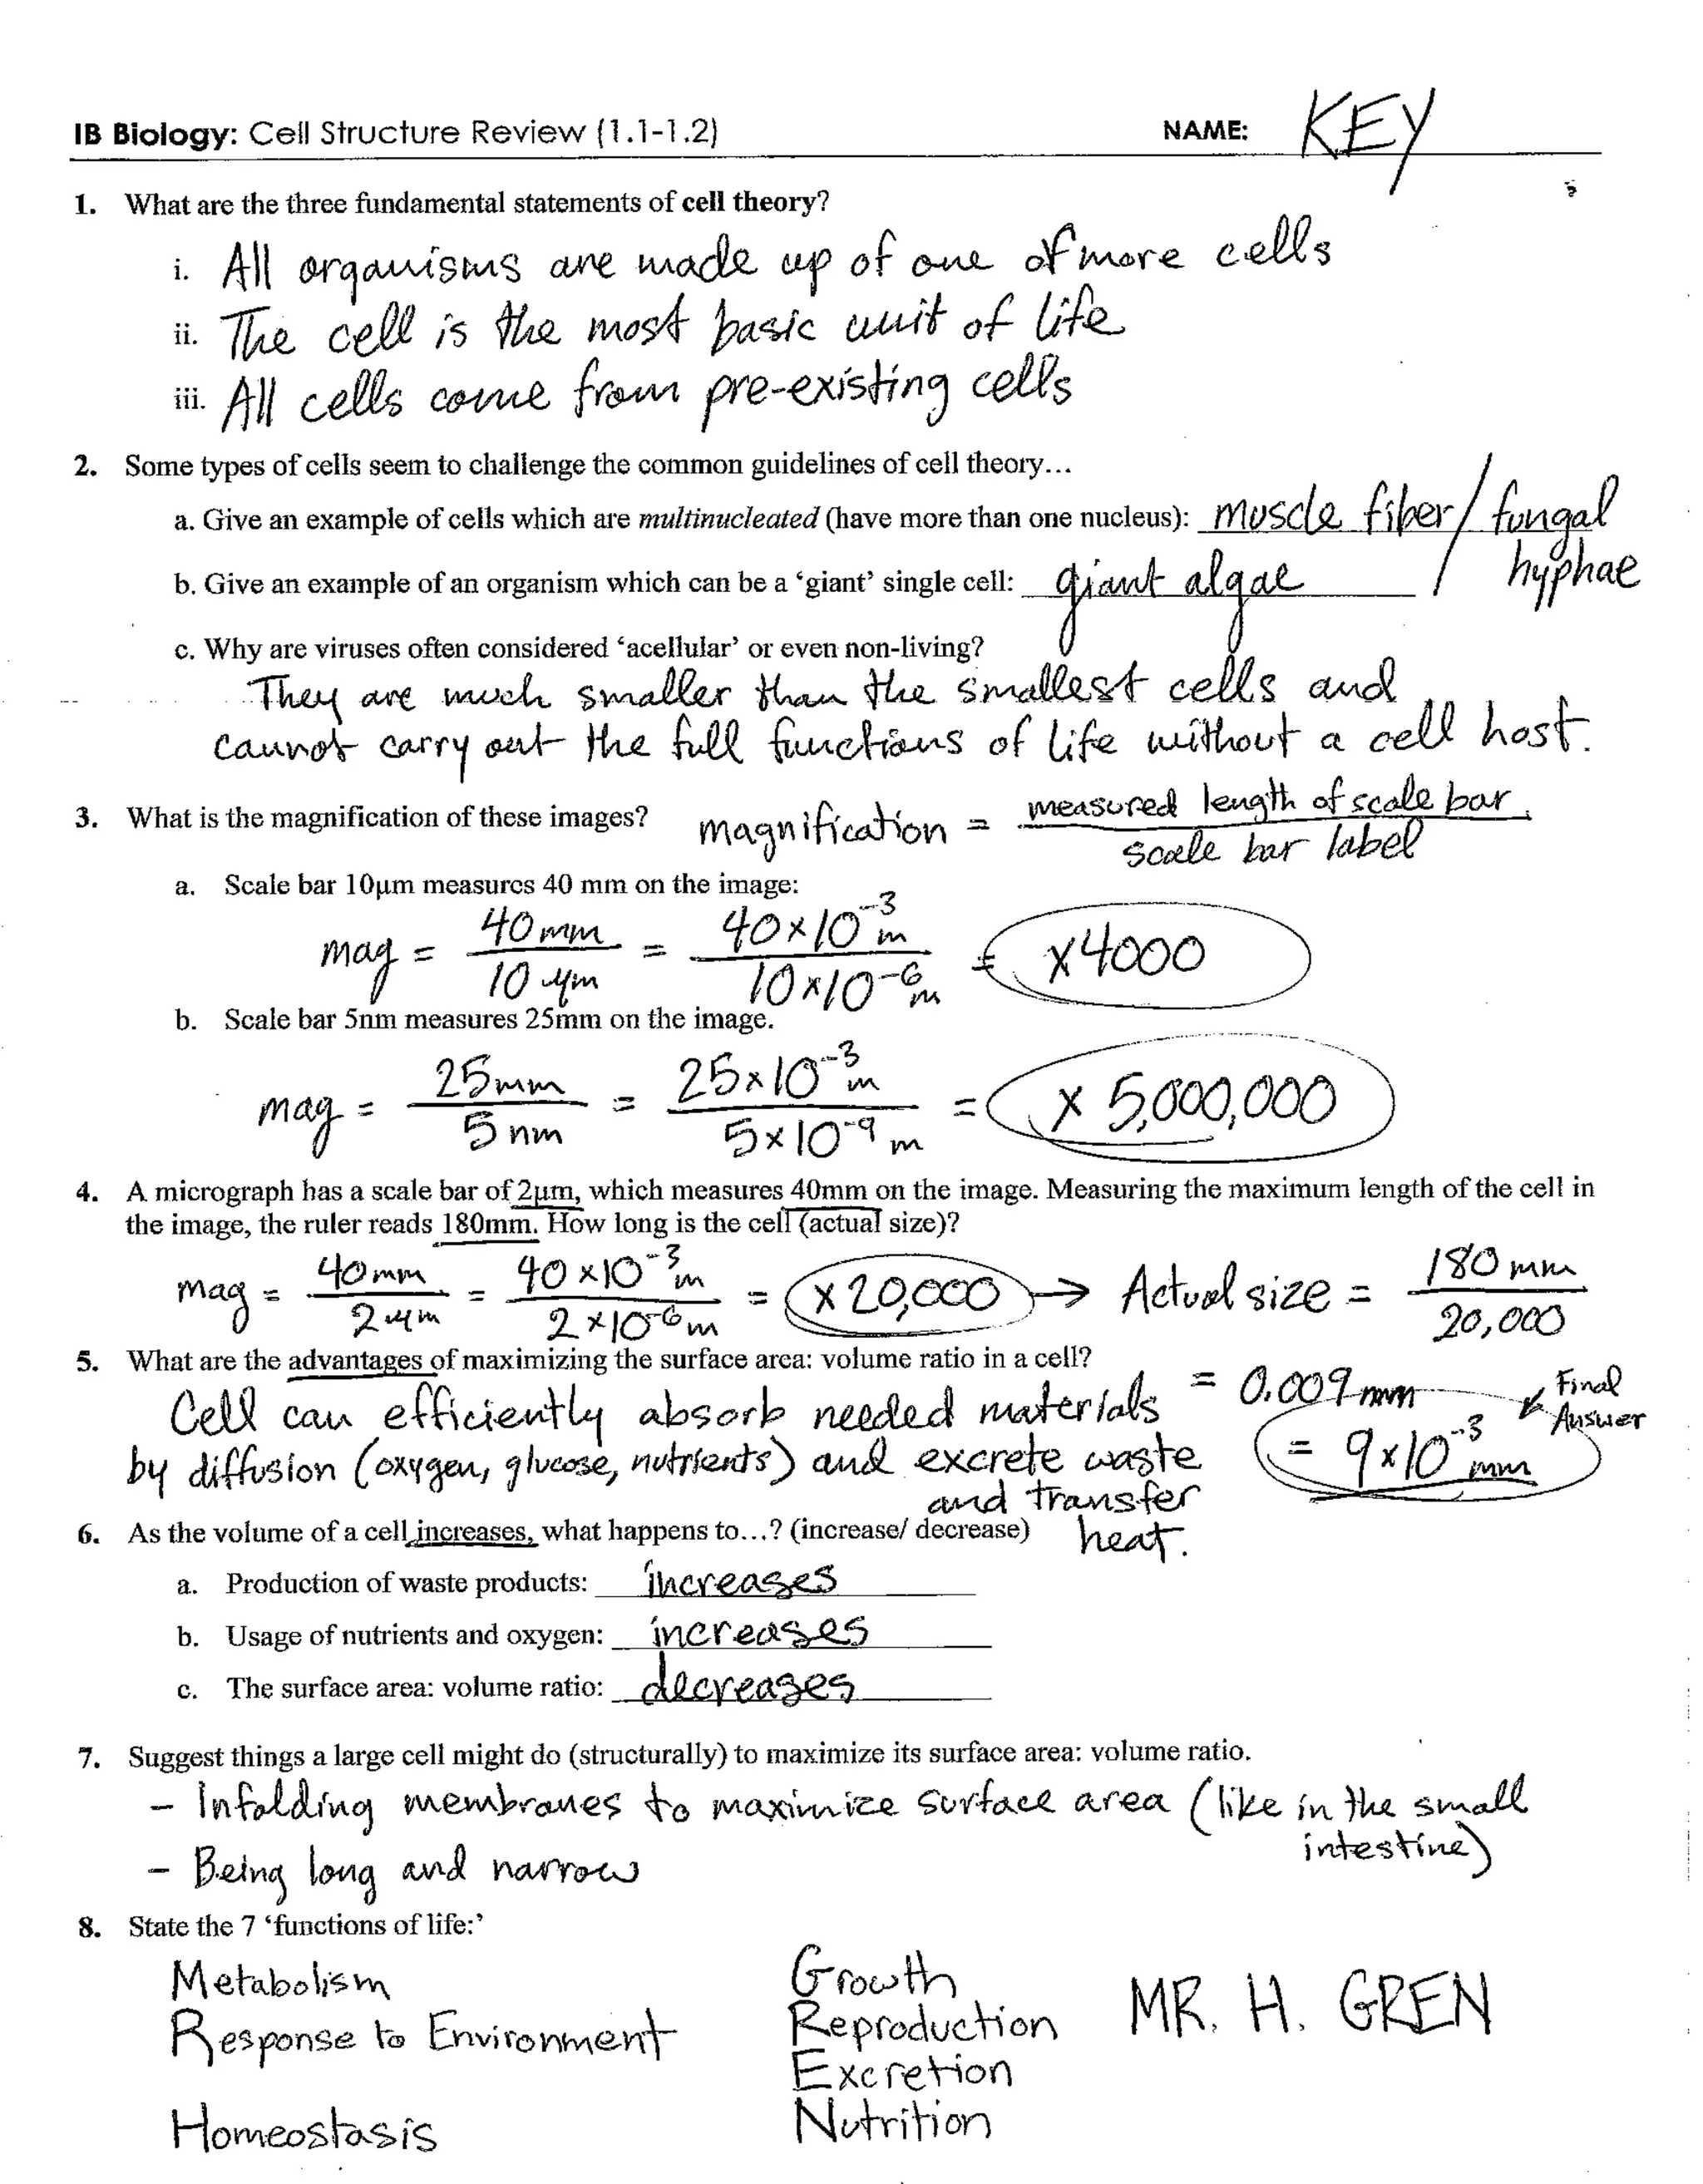 IB Biology: Cell Structure Review (1.1-1.2) NAME: KEY
1. What are the three fundamental statements of cell theory?
i. All organisms are made up of one of more cells
ii. The cell is the most basic unit of life
iii. All cells come from pre-existing cells
2. Some types of cells seem to challenge the common guidelines of cell theory…
a. Give an example of cells which are multinucleated (have more than one nucleus): muscle fiber / fungal hyphae
b. Give an example of an organism which can be a ‘giant’ single cell: giant algae
c. Why are viruses often considered ‘acellular’ or even non-living?
They are much smaller than the smallest cells and
cannot carry out the full functions of life without a cell host.
3. What is the magnification of these images? magnification = measured length of scale bar / scale bar label
a. Scale bar 10µm measures 40 mm on the image:
mag = 40mm / 10 µm = 40x10⁻³m / 10x10⁻⁶m = x4000
b. Scale bar 5nm measures 25mm on the image.
mag = 25mm / 5nm = 25x10⁻³m / 5x10⁻⁹m = x 5,000,000
4. A micrograph has a scale bar of 2µm, which measures 40mm on the image. Measuring the maximum length of the cell in
the image, the ruler reads 180mm. How long is the cell (actual size)?
mag = 40mm / 2µm = 40x10⁻³m / 2x10⁻⁶m = x 20,000 → Actual size = 180mm / 20,000
= 0.009mm
= 9x10⁻³mm Final Answer
5. What are the advantages of maximizing the surface area: volume ratio in a cell?
Cell can efficiently absorb needed materials
by diffusion (oxygen, glucose, nutrients) and excrete waste
and transfer
heat.
6. As the volume of a cell increases, what happens to…? (increase/ decrease)
a. Production of waste products: increases
b. Usage of nutrients and oxygen: increases
c. The surface area: volume ratio: decreases
7. Suggest things a large cell might do (structurally) to maximize its surface area: volume ratio.
- Infolding membranes to maximize surface area (like in the small
intestine)
- Being long and narrow
8. State the 7 ‘functions of life:’
Metabolism
Response to Environment
Homeostasis
Growth
Reproduction
Excretion
Nutrition
MR. H. GREN